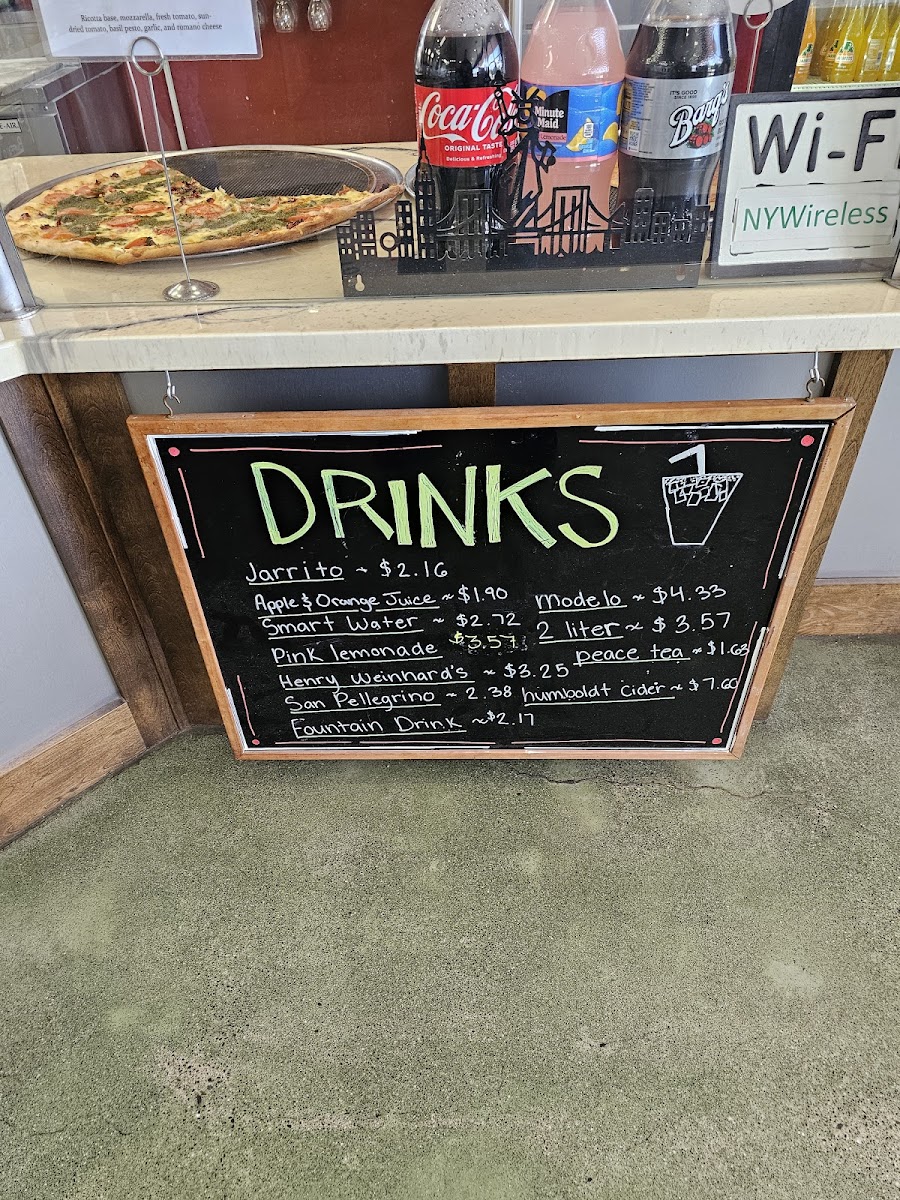 Ricotta base, mozzarella, fresh tomato, sun-
dried tomato, basil pesto, garlic, and romano cheese
Coca-Co
ORIGINAL TASTE
Delicious & Refreshing
Minute
Maid
Lemonade
IT'S GOOD
SINCE 1898
Barq's
Wi-F
NYWireless
E-AIR
DRINKS
Jarrito ~ $2.16
Apple & Orange Juice ~ $1.90
Smart Water ~ $2.72
Pink lemonade $3.57
Henry Weinhard's ~ $3.25
San Pellegrino ~ 2.38
Fountain Drink ~ $2.17
Modelo ~ $4.33
2 liter ~ $3.57
peace tea ~ $1.63
humboldt cider ~ $7.60